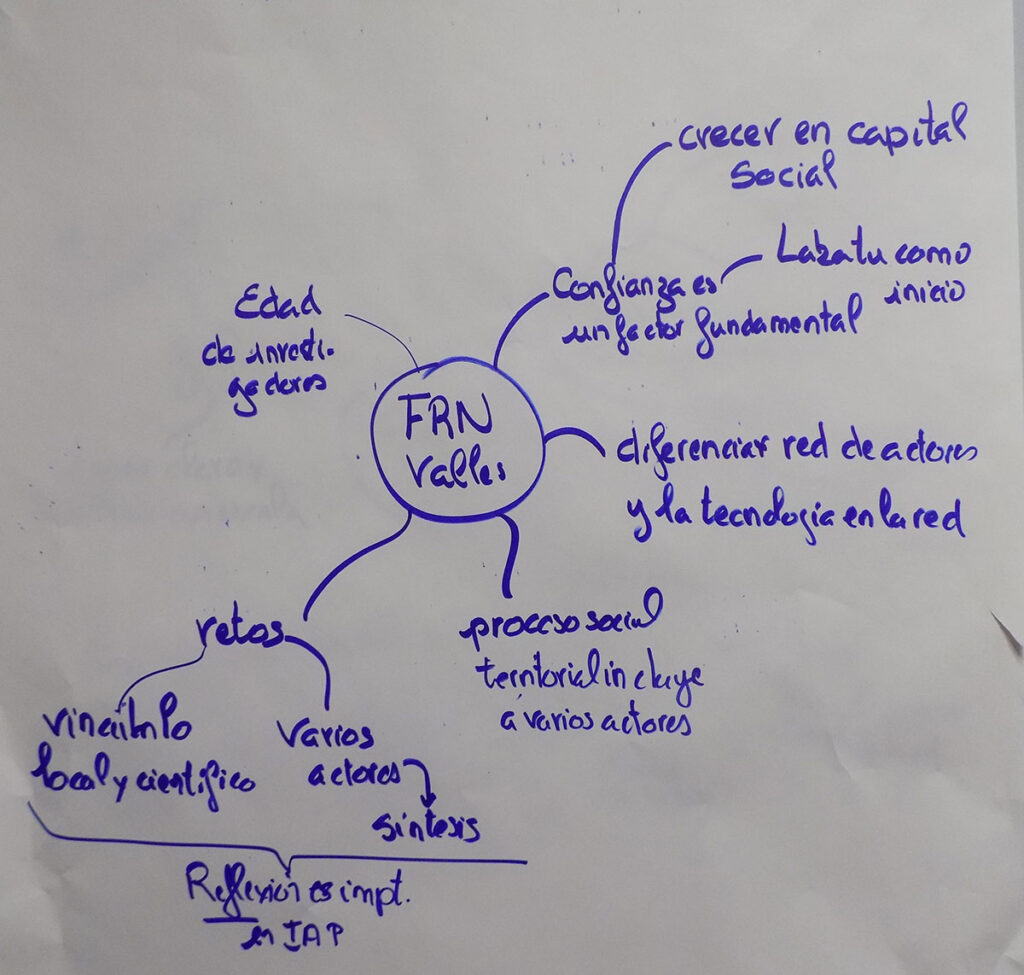 crecer en capital
social
Confianza es
un factor fundamental
Labatu como
inicio
Edad
de investi-
gadores
FRN
Valles
diferenciar red de actores
y la tecnología en la red
retos
proceso social
territorial incluye
a varios actores
vinculo
local y científico
varios
actores
síntesis
Reflexión es impt.
en IAP